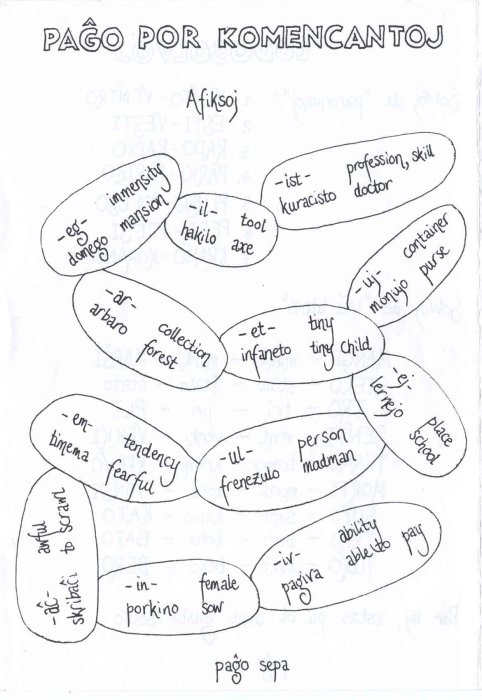 PAĜO POR KOMENCANTOJ
Afiksoj
-eg- immensity
domego mansion
-il- tool
hakilo axe
-ist- profession, skill
kuracisto doctor
-uj- container
monujo purse
-ar- collection
arbaro forest
-et- tiny
infaneto tiny child
-ej- place
lernejo school
-em- tendency
timema fearful
-ul- person
frenezulo madman
-aĉ- awful
skribaĉi to scrawl
-in- female
porkino sow
-iv- ability
pagiva able to pay
paĝo sepa